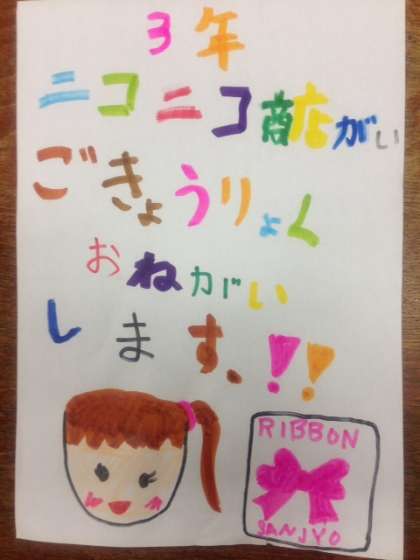 3年
ニコニコ商店がい
ごきょうりょく
おねがい
します、!!
RIBBON
SANJYO